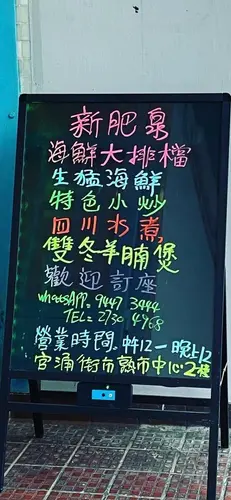 新肥泉
海鮮大排檔
生猛海鮮
特色小炒
四川水煮
雙冬羊腩煲
歡迎訂座
WhatsAPP：9447 3944
TEL：2730 4968
營業時間：中午12一晚上12
官涌街市熟市中心2樓